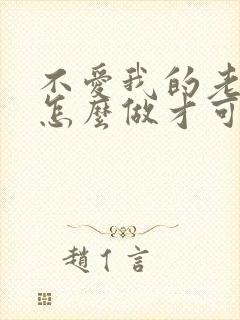 不愛我的老
怎麼做才可
趙亻言